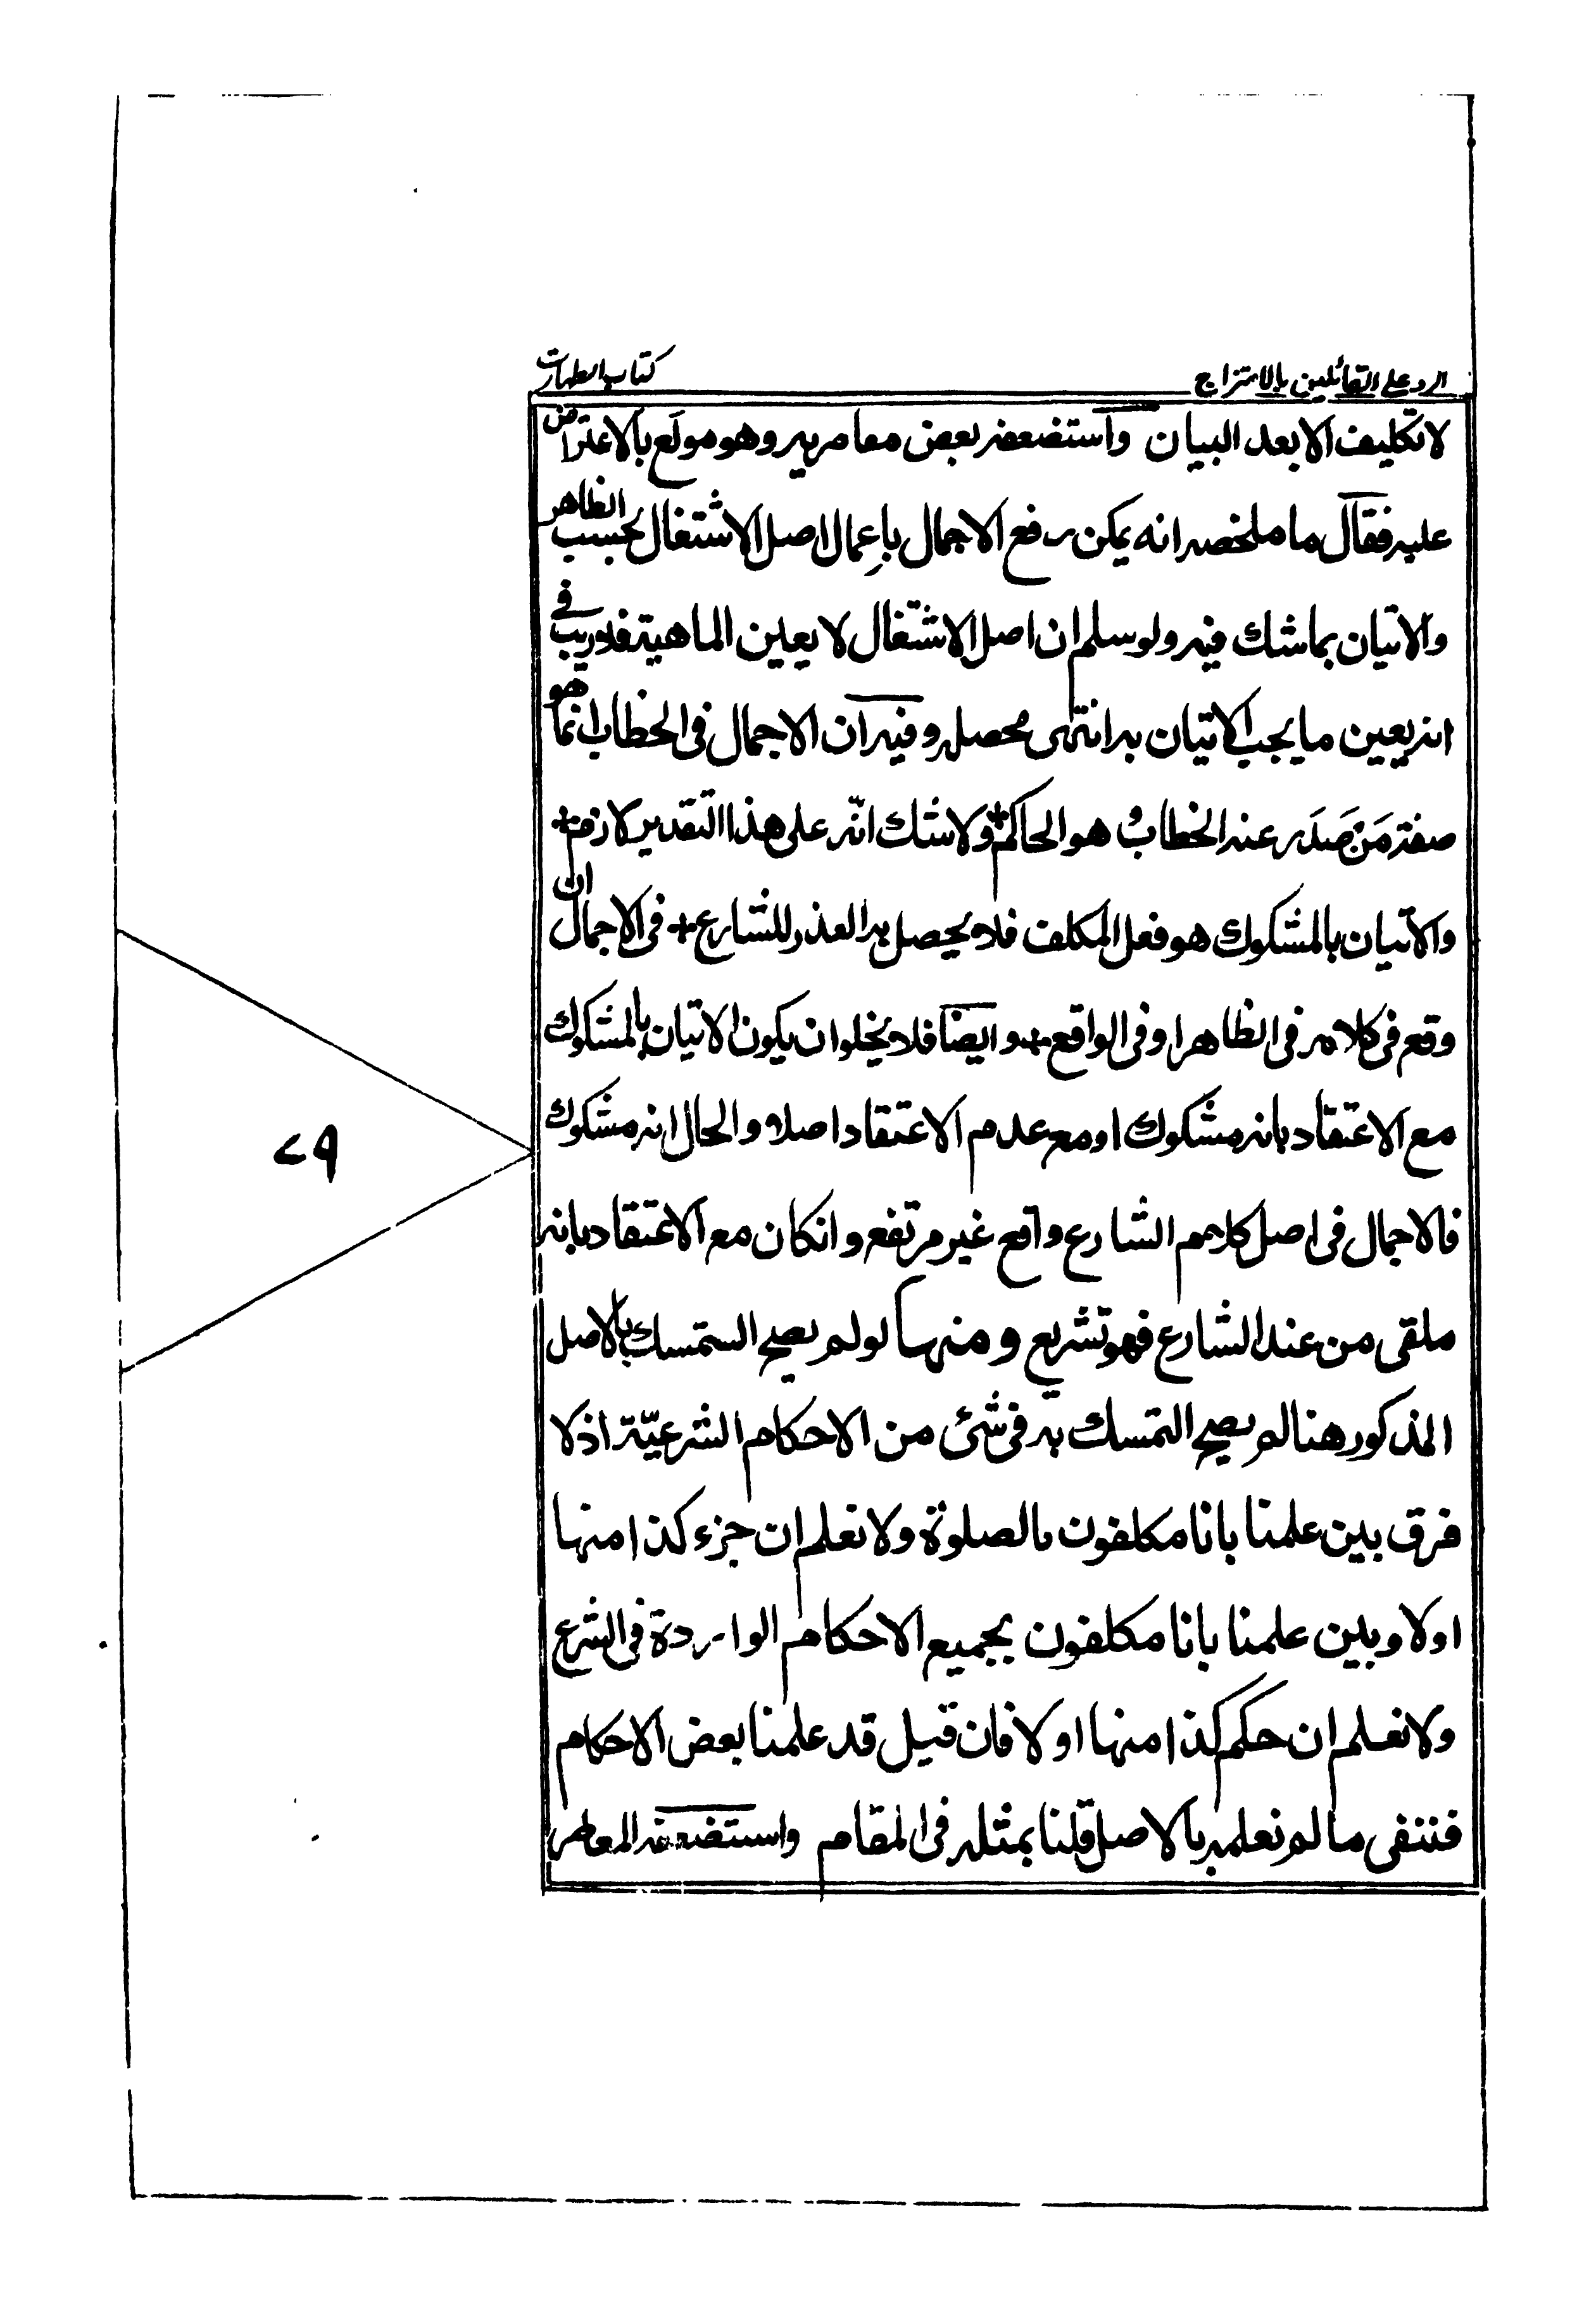 الرد على القائلين بالامتزاج
كتاب الطهارت
لا تكليف الا بعد البيان واستضعفه بعض معاصريه وهو مولع بالاعتراض
عليه فقال ما ملخصه انه يمكن رفع الاجمال باعمال اصل الاشتغال بحسب الظاهر
والاتيان بما شك فيه ولو سلم ان اصل الاشتغال لا يعين الماهية فلا ريب في
انه يعين ما يجب الاتيان به انتهى محصله وفيه ان الاجمال في الخطاب انما هو
صفة مَن صَدَر عنه الخطاب و هو الحاكم + ولا شك انّه على هذا التقدير لازم +
والاتيان بالمشكوك هو فعل المكلف فلا يحصل به العذر للشارع + في ان الاجمال
وقع في كلامه في الظاهر او في الواقع + وايضا فلا يخلو ان يكون الاتيان بالمشكوك
مع الاعتقاد بانه مشكوك او مع عدم الاعتقاد اصلا والحال انه مشكوك
فالاجمال في اصل كلام الشارع واقع غير مرتفع وانكان مع الاعتقاد بانه
ملقى من عند الشارع فهو تشريع ومنها لو لم يصح الستمسك بالاصل
المذكور هنا لم يصح التمسك به في شئ من الاحكام الشرعيّة اذ لا
فرق بين علمنا بانا مكلفون بالصلوة ولا نعلم ان جزء كذا منها
اولا وبين علمنا بانا مكلفون بجميع الاحكام الواردة في الشرع
ولا نعلم ان حكم كذا منها اولا فان قيل قد علمنا بعض الاحكام
فننفى ما لم نعلمه بالاصل قلنا بمثله في المقام واستضعفه المعاصر
٧٩